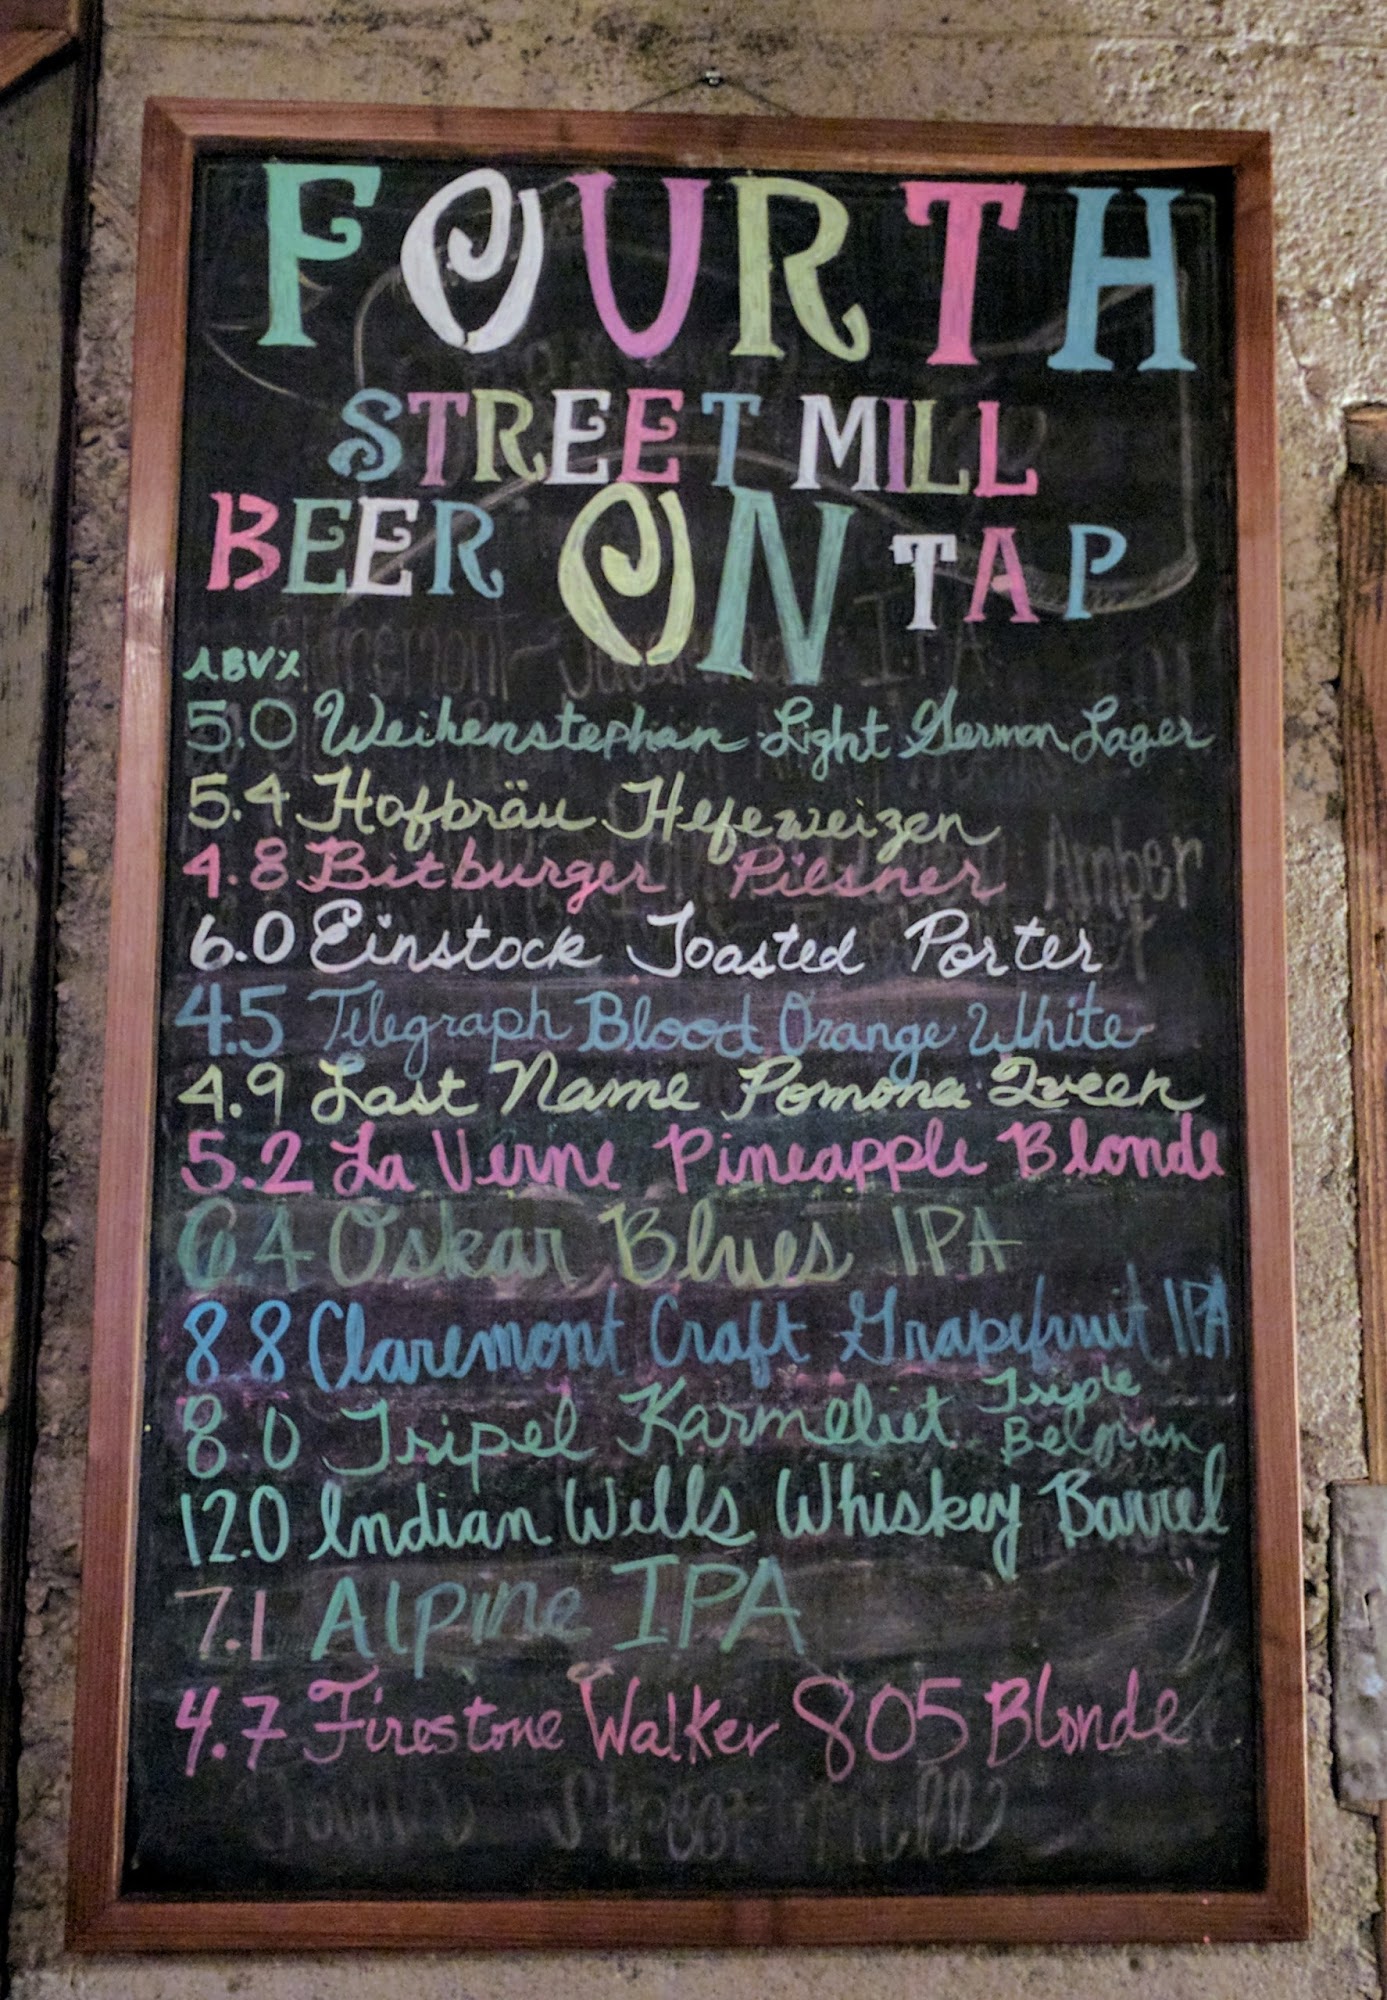 FOURTH
STREET MILL
BEER ON TAP
ABV%
5.0 Weihenstephan Light German Lager
5.4 Hofbräu Hefeweizen
4.8 Bitburger Pilsner
6.0 Einstock Toasted Porter
4.5 Telegraph Blood Orange White
4.9 Last Name Pomona Queen
5.2 La Verne Pineapple Blonde
6.4 Oskar Blues IPA
8.8 Claremont Craft Grapefruit IPA
8.0 Tripel Karmeliet Triple
Belgian
12.0 Indian Wells Whiskey Barrel
7.1 Alpine IPA
4.7 Firestone Walker 805 Blonde